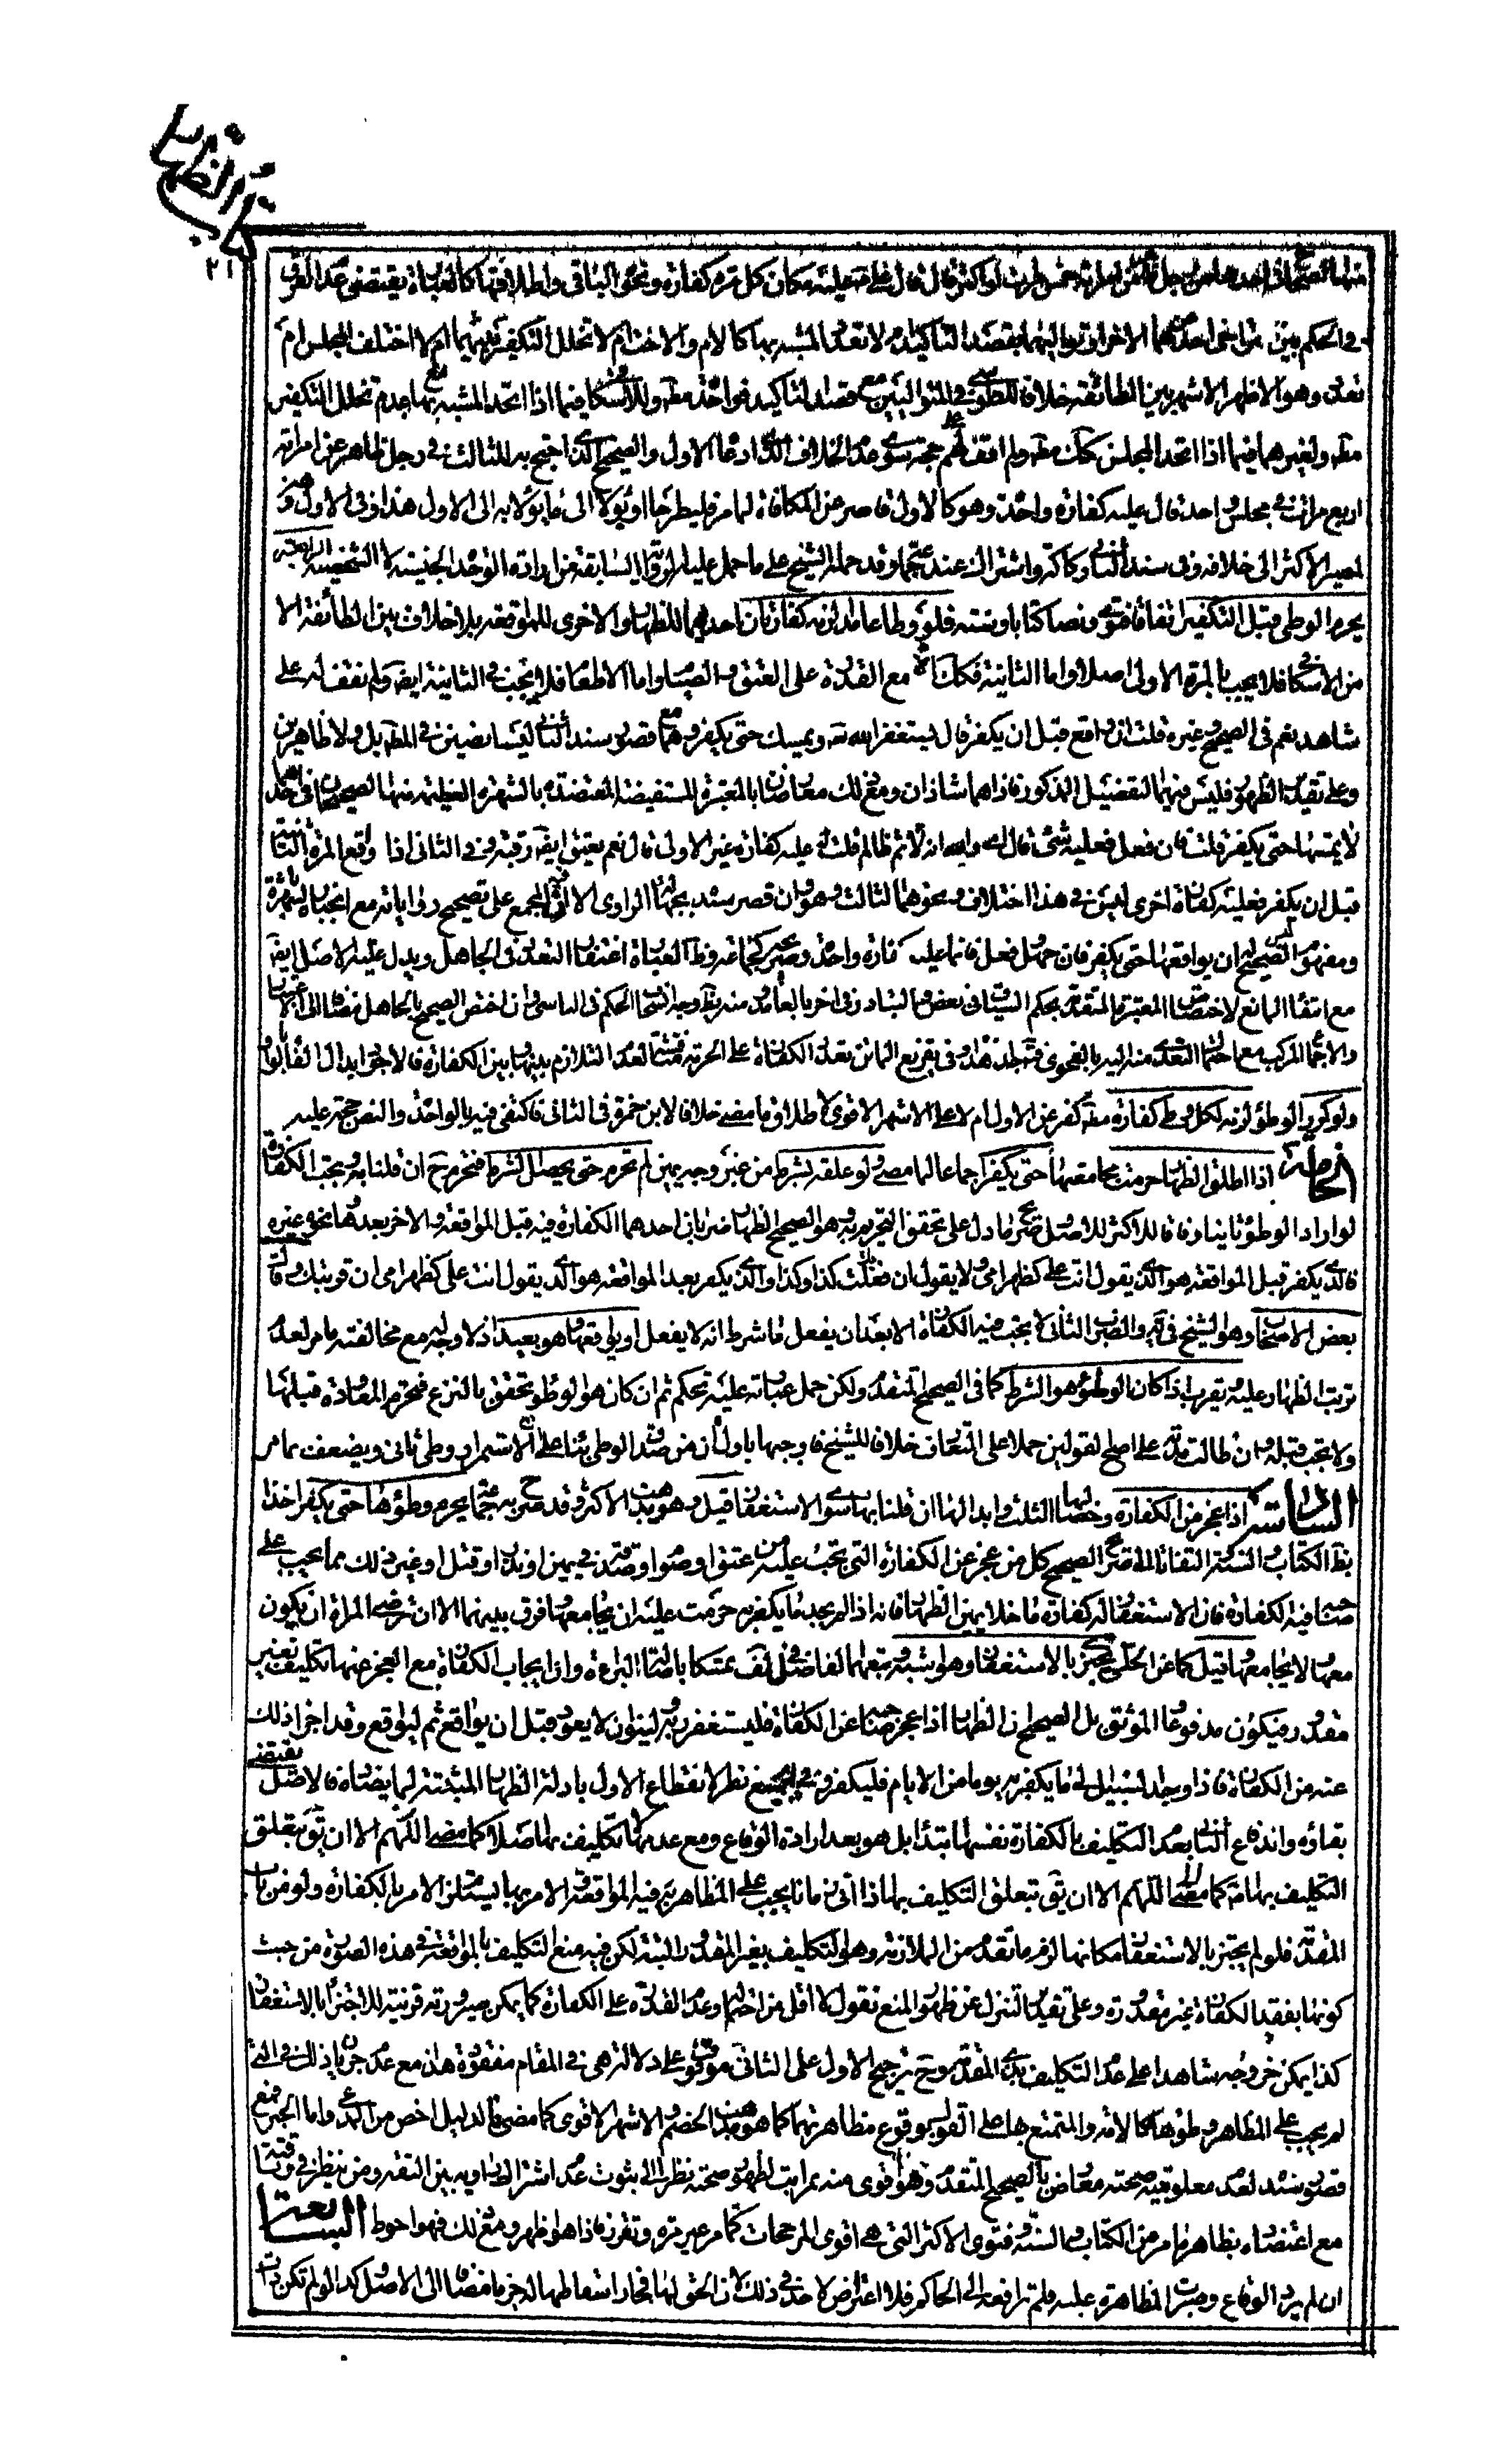 كتاب الظهار
٢١
منها الصحيحان في احدهما عن رجل ظاهر من امراته خمس مرات او اكثر قال قال على ع عليه مكان كل مرة كفارة ونحوه الباقي واطلاقها كالعبارة يقتضي عدم الفرق
في الحكم بين تراخى احدهما عن الاخر او تواليهما بقصد التاكيد ام لا تعدد المشبه بها كالام والاخت ام لا تخلل التكفير بينهما ام لا اختلف المجلس ام
تعدد وهو الاظهر الاشهر بين الطائفة خلافا للطوسي في المتواليين مع قصد التاكيد فواحدة مطه وللاسكافي فيما اذا اتحد المشبه بها مع عدم تخلل التكفير
مطه ولغيرهما فيما اذا اتحد المجلس كك مطه ولم اقف لهم على حجة سوى عدم الخلاف الذي ادعاه الاول والصحيح الذي احتج به للثالث في رجل ظاهر من امراته
اربع مرات في مجلس واحد قال عليه كفارة واحدة وهو كالاول قاصر عن المكافاة لما مر فليطرحا او يؤلا الى ما يؤلا به الى الاول هذا وفي الاول وهن
لمصير الاكثر الى خلافه وفي سند الثاني وكاكة واشتراك عند جماعة وقد حمله الشيخ على ما حمل عليه الرواية السابقة من ارادة الوحدة الجنسية لا الشخصية الرابعة
يحرم الوطى قبل التكفير اتفاقا فتوى ونصا كتابا وسنة فلو وطا عامدا لزمه كفارتان احديهما للظهار والاخرى للمواقعة بلا خلاف بين الطائفة الا
من الاسكافي فلا يجب بالمرة الاولى اصلا واما الثانية فكك الا مع القدرة على العتق والصيام واما الاطعام فلا يجب في الثانية ايضه ولم نقف له على
شاهد نعم في الصحيح وغيره قلت ان واقع قبل ان يكفر قال يستغفر الله تعه ويمسك حتى يكفر وهما مع قصور سند الثاني ليسا بنصين في المط بل ولا ظاهرين
وعلى تقدير الظهور فليس فيهما التفضيل المذكور فاذا هما شاذان ومع ذلك معارضان بالمعتبرة المستفيضة المعتضدة بالشهرة العظيمة منها الصحيحان في احدهما
لا يمسها حتى يكفر قلت فان فعل فعليه شئ قال اى والله انه لاثم ظالم قلت عليه كفارة غير الاولى قال نعم يعتق ايضه رقبة وفي الثاني اذا واقع المرة الثانية
قبل ان يكفر فعليه كفارة اخرى ليس في هذا اختلاف ونحوهما الثالث وهو وان قصر سنده بجهالة الراوى الا ان فيه المجمع على تصحيح رواياته مع انجباره بالشهرة
ومفهوم الصحيح ليس له ان يواقعها حتى يكفر فان جهل وفعل فانما عليه كفارة واحدة وصريحه كجماعة وظ العبارة اغتفار التعدد في الجاهل ويدل عليه الاصل ايضه
مع انتفاء المانع لاختصاص المعتبرة المتقدمة بحكم السياق في بعض والتبادر في اخر بالعامد ومنه يظهر وجه انسحاب الحكم في الناسي وان اختص الصحيح بالجاهل مضافا الى
والاجماع المركب مع احتمال التعدى منه اليه بالفحوى فتجد
ولو كرر الوطؤ لزمه لكل وطى كفارة مطه كفر عن الاول ام لا على الاشهر الاقوى لاطلاق ما مضى خلافا لابن حمزة في الثاني فاكتفى فيه بالواحدة والنص حجة عليه
الخامسة اذا اطلق الظهار حرمت مجامعتها حتى يكفر اجماعا لما مضى ولو علقه بشرط من غير وجه يمين لم تحرم حتى يحصل الشرط فتحرم ح ان قلنا به ويجب الكفارة
لو اراد الوطؤ ثانيا وفاقا للاكثر للاصل وصريح ما دل على تحقق التحريم به وهو الصحيح الظهار ضربان احدهما الكفارة فيه قبل المواقعة والاخر بعدها ونحوه غيره
فالذي يكفر قبل المواقعة هو الذي يقول انت على كظهر امى ولا يقول ان فعلت كذا وكذا والذي يكفر بعد المواقعة هو الذي يقول انت على كظهر امى ان قربتك وقال
بعض الاصحاب وهو الشيخ في يه والضرب الثاني لا يجب فيه الكفارة الا بعد ان يفعل ما شرط انه لا يفعل او يواقعها وهو بعيد اذ لا وجه له مع مخالفته ما مر لعدم
ترتب الظهار عليه ويقرب اذا كان الوطؤ هو الشرط كما في الصحيح المتقدم ولكن حمل عبارته عليه تحكم ثم ان كان هو الوطؤ تحقق بالنزع فتحرم المعاودة قبلها
ولا تجب قبله وان طالت مدته على اصح القولين حملا على المتعارف خلافا للشيخ فاوجبها باول ان من صدق الوطى بناء على ان الاستمرار وطى ثانى ويضعف بما مر
السادسة اذا عجز عن الكفارة وخصالها الثلث وابدالها ان قلنا بها سوى الاستغفار قيل وهو مذهب الاكثر وقد صرح به جماعة يحرم وطؤها حتى يكفر اخذا
بظ الكتاب والسنة والتفاتا الى صريح الصحيح كل من عجز عن الكفارة التي تجب عليه من عتق او صوم او صدقة في يمين او نذر او قتل او غير ذلك مما يجب على
صاحبه فيه الكفارة فان الاستغفار له كفارة ما خلا يمين الظهار فانه اذا لم يجد ما يكفر به حرمت عليه ان يجامعها وفرق بينهما الا ان ترضى المراة ان يكون
معها ولا يجامعها وقيل كما عن الحلى يجتزى بالاستغفار وهو اشبه وتبعهما الفاضل في لف تمسكا باصالة البراءة وان ايجاب الكفارة مع العجز عنها تكليف بغير
مقدور فيكون مدفوعا والموثق بل الصحيح ان الظهار اذا عجز صاحبه عن الكفارة فليستغفر ربه ولينو ان لا يعود قبل ان يواقع ثم ليواقع وقد اجزا ذلك
عنه من الكفارة فاذا وجد السبيل الى ما يكفر به يوما من الايام فليكفر وفي الجميع نظر لانقطاع الاول بادلة الظهار المثبتة لما يضاده فالاصل يقتضى
بقاؤه واندفاع الثاني بعدم التكليف بالكفارة نفسها ابتداء بل هو بعد ارادة الوقاع ومع عدمها لا تكليف بها اصلا كما مضى اللهم الا ان يقو بتعلق
التكليف بها مة كما مضى اللهم الا ان يقو بتعلق التكليف بها اذا اتى زمان يجب على المظاهر فيه المواقعة والامر بها يستلزم الامر بالكفارة ولو من باب
المقدمة فلو لم يجتز بالاستغفار مكانها لزم ما تقدم من الملازمة وهو التكليف بغير المقدور البتة لكن فيه منع التكليف بالمواقعة في هذه الصورة من حيث
كونها بفقد الكفارة غير مقدورة وعلى تقدير التنزل عن ظهور المنع نقول لا اقل من احتماله وعدم القدرة على الكفارة كما يمكن صيرورته قرينة للاجتزاء بالاستغفار
كذا يمكن خروجه شاهدا على عدم التكليف بذى المقدمة وح ترجيح الاول على الثاني موقوف على دلالة هي في المقام مفقودة هذا مع عدم جريان ذلك في التى
لم يجب على المظاهر وطؤها كالامة والمتمتع بها على القول بوقوع مظاهرتهما كما هو مذهب الخصم والاشهر الاقوى كما مضى فالدليل اخص من المدعى واما الخبر فمع
قصور سنده لعدم معلومية صحته معارض بالصحيح المتقدم وهو اقوى منه بمراتب لظهور صحته نظرا الى ثبوت عدم اشتراك راويه بين الثقة ومن ينظر في وثاقته
مع اعتضاده بظاهر ما مر من الكتاب والسنة وفتوى الاكثر التى هى اقوى المرجحات كما مر غير مرة وتقرر فاذا هو اظهر ومع ذلك فهو احوط السابعة
ان لم يرد الوقاع وصبرت المظاهرة عليه ولم ترافعه الى الحاكم فلا اعتراض لاحد في ذلك لان الحق لها فجاز اسقاطها له جزما مضافا الى الاصل كذا لو لم تكن